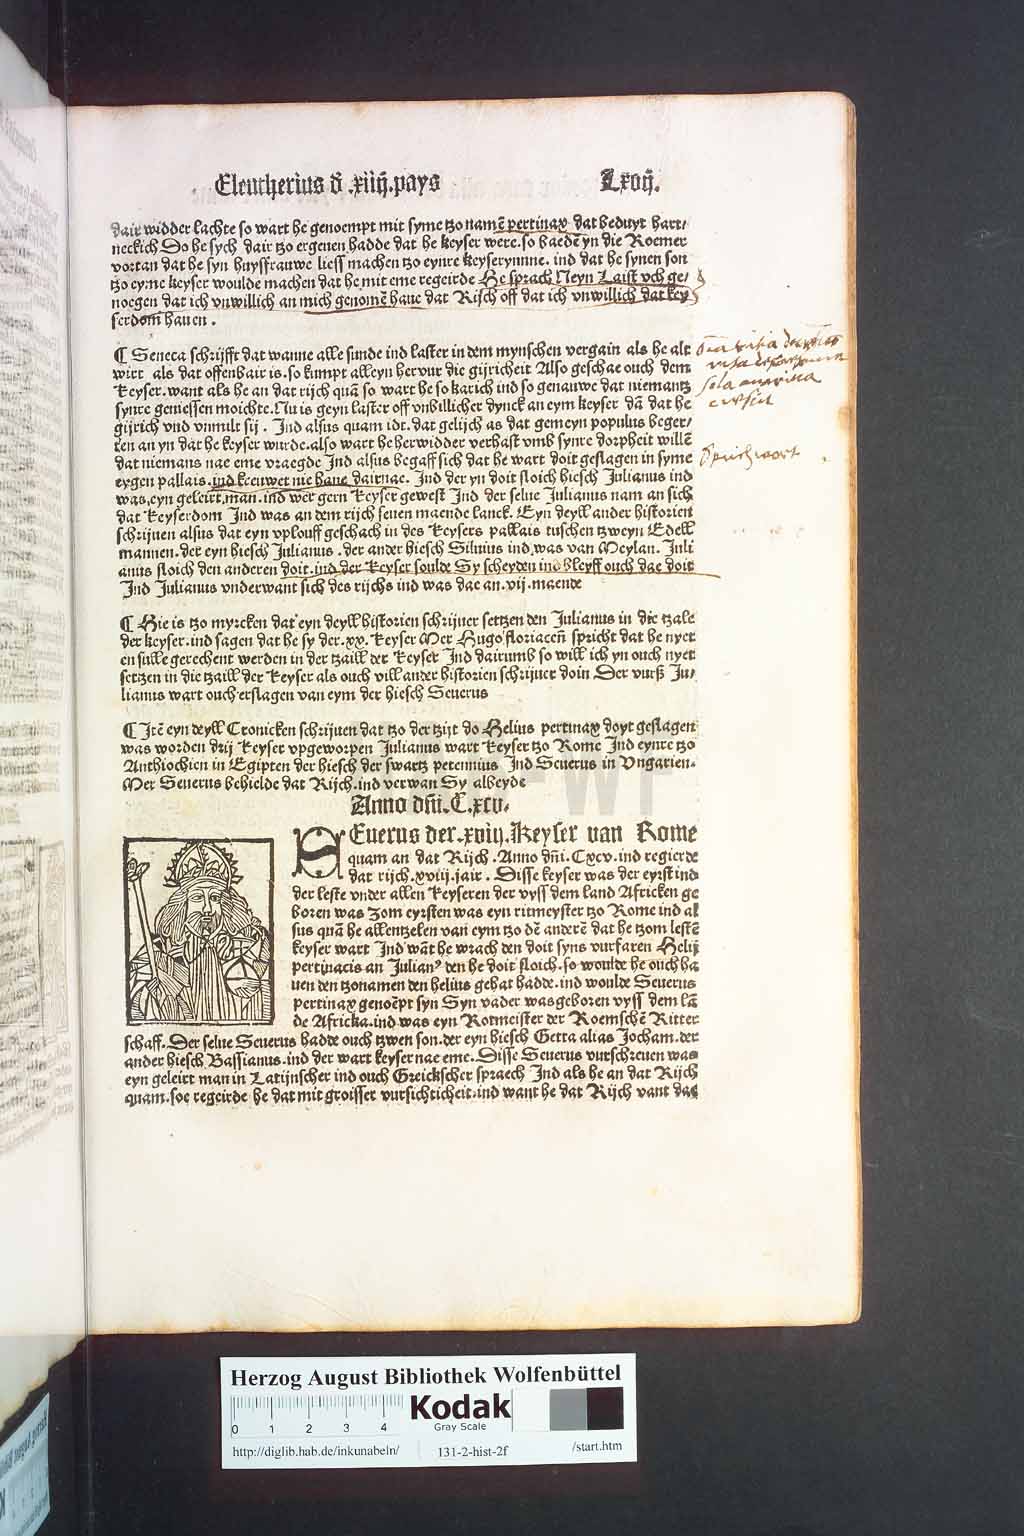 Eleutherius d̄ .xiiij. pays
dair widder lachte so wart he genoempt mit syme tzo namē pertinax dat beduyt hart⸗
neckich Do he sych dair tzo ergeuen hadde dat he keyser were. so baedē yn die Roemer
vortan dat he syn huysfrauwe liess machen tzo eynre keyserynnne. ind dat he synen son
tzo eyme keyser woulde machen dat he mit eme regeirde He sprach Neyn Laist vch ge⸗
noegen dat ich vnwillich an mich genomē haue dat Rijch off dat ich vnwillich dat key
serdom hauen.
¶ Seneca schrijfft dat wanne alle sunde ind laster in dem mynschen vergain als he alt
wirt als dat offenbair is. so kumpt alleyn hervur die gijricheit Also geschae ouch dem
Keyser. want als he an dat rijch quā so wart he so karich ind so genauwe dat niemantz
synre geniessen moichte. Nu is geyn laster off vnbillicher dynck an eym keyser dā dat he
gijrich vnd vnmilt sij. Ind alsus quam idt. dat gelijch as dat gemeyn populus beger⸗
ten an yn dat he keyser wurde. also wart he herwidder verhast vmb synre dorpheit willē
dat niemans nae eme vraegde Ind alsus begaff sich dat he wart doit geslagen in syme
eygen pallais. ind kreuwet nie hane dairnae. Ind der yn doit sloich hiesch Julianus ind
was eyn geleirt man. ind wer gern Keyser gewest Ind der selue Julianus nam an sich
dat Keyserdom Ind was an dem rijch seuen maende lanck. Eyn deyll ander historien
schrijuen alsus dat eyn vplouff geschach in des Keysers pallais tuschen tzweyn Edell
mannen. der eyn hiesch Julianus. der ander hiesch Siluius ind was van Meylan. Juli
anus sloich den anderen doit. ind der Keyser soulde Sy scheyden ind bleyff ouch dae doit
Ind Julianus vnderwant sich des rijchs ind was dae an. vij. maende
¶ Hie is tzo myrcken dat eyn deyll historien schrijuer settzen den Julianus in die tzale
der keyser. ind sagen dat he sy der. xx. Keyser Mer Hugo floriacen̄ spricht dat he nyet
en sulle gerechent werden in der tzaill der Keyser Ind dairumb so will ich yn ouch nyet
setzen in die tzaill der Keyser als ouch vill ander historien schrijuer doin Der vurß Ju⸗
lianus wart ouch erslagen van eym der hiesch Seuerus
¶ Itē eyn deyll Cronicken schrijuen dat tzo der tzijt do Helius pertinax doyt geslagen
was worden drij Keyser vpgeworpen Julianus wart Keyser tzo Rome Ind eynre tzo
Anthiochien in Egipten der hiesch der swartz petennius Ind Seuerus in Vngarien.
Mer Seuerus behielde dat Rijch. ind verwan Sy albeyde
Anno dn̄i. C. xcv.
SEuerus der. xviij. Keyser van Rome
quam an dat Rijch. Anno dn̄i. Cxcv. ind regierde
dat rijch. xviij. jair. Disse keyser was der eyrst ind
der leste vnder allen Keyseren der vyss dem land Africken ge
boren was Zom eyrsten was eyn ritmeyster tzo Rome ind al
sus quā he allentzelen van eym tzo dē anderē dat he tzom lestē
keyser wart Ind wāt he wrach den doit syns vurfaren Helij
pertinacis an Julianꝰ den he doit sloich. so woulde he ouch ha
uen den tzonamen den helius gehat hadde. ind woulde Seuerus
pertinax genoēpt syn Syn vader was geboren vyss dem lā
de Africka. ind was eyn Rotmeister der Roemschē Ritter
schaff. Der selue Seuerus hadde ouch tzwen son. der eyn hiesch Getta alias Jocham. der
ander hiesch Bassianus. ind der wart keyser nae eme. Disse Seuerus vurschreuen was
eyn geleirt man in Latijnscher ind ouch Greickscher spraech Ind als he an dat Rijch
quam. soe regeirde he dat mit groisser vursichticheit. ind want he dat Rijch vant dae
Sprichwort
Herzog August Bibliothek Wolfenbüttel
0 1 2 3 4
Kodak
Gray Scale
http://diglib.hab.de/inkunabeln/ 131-2-hist-2f /start.htm